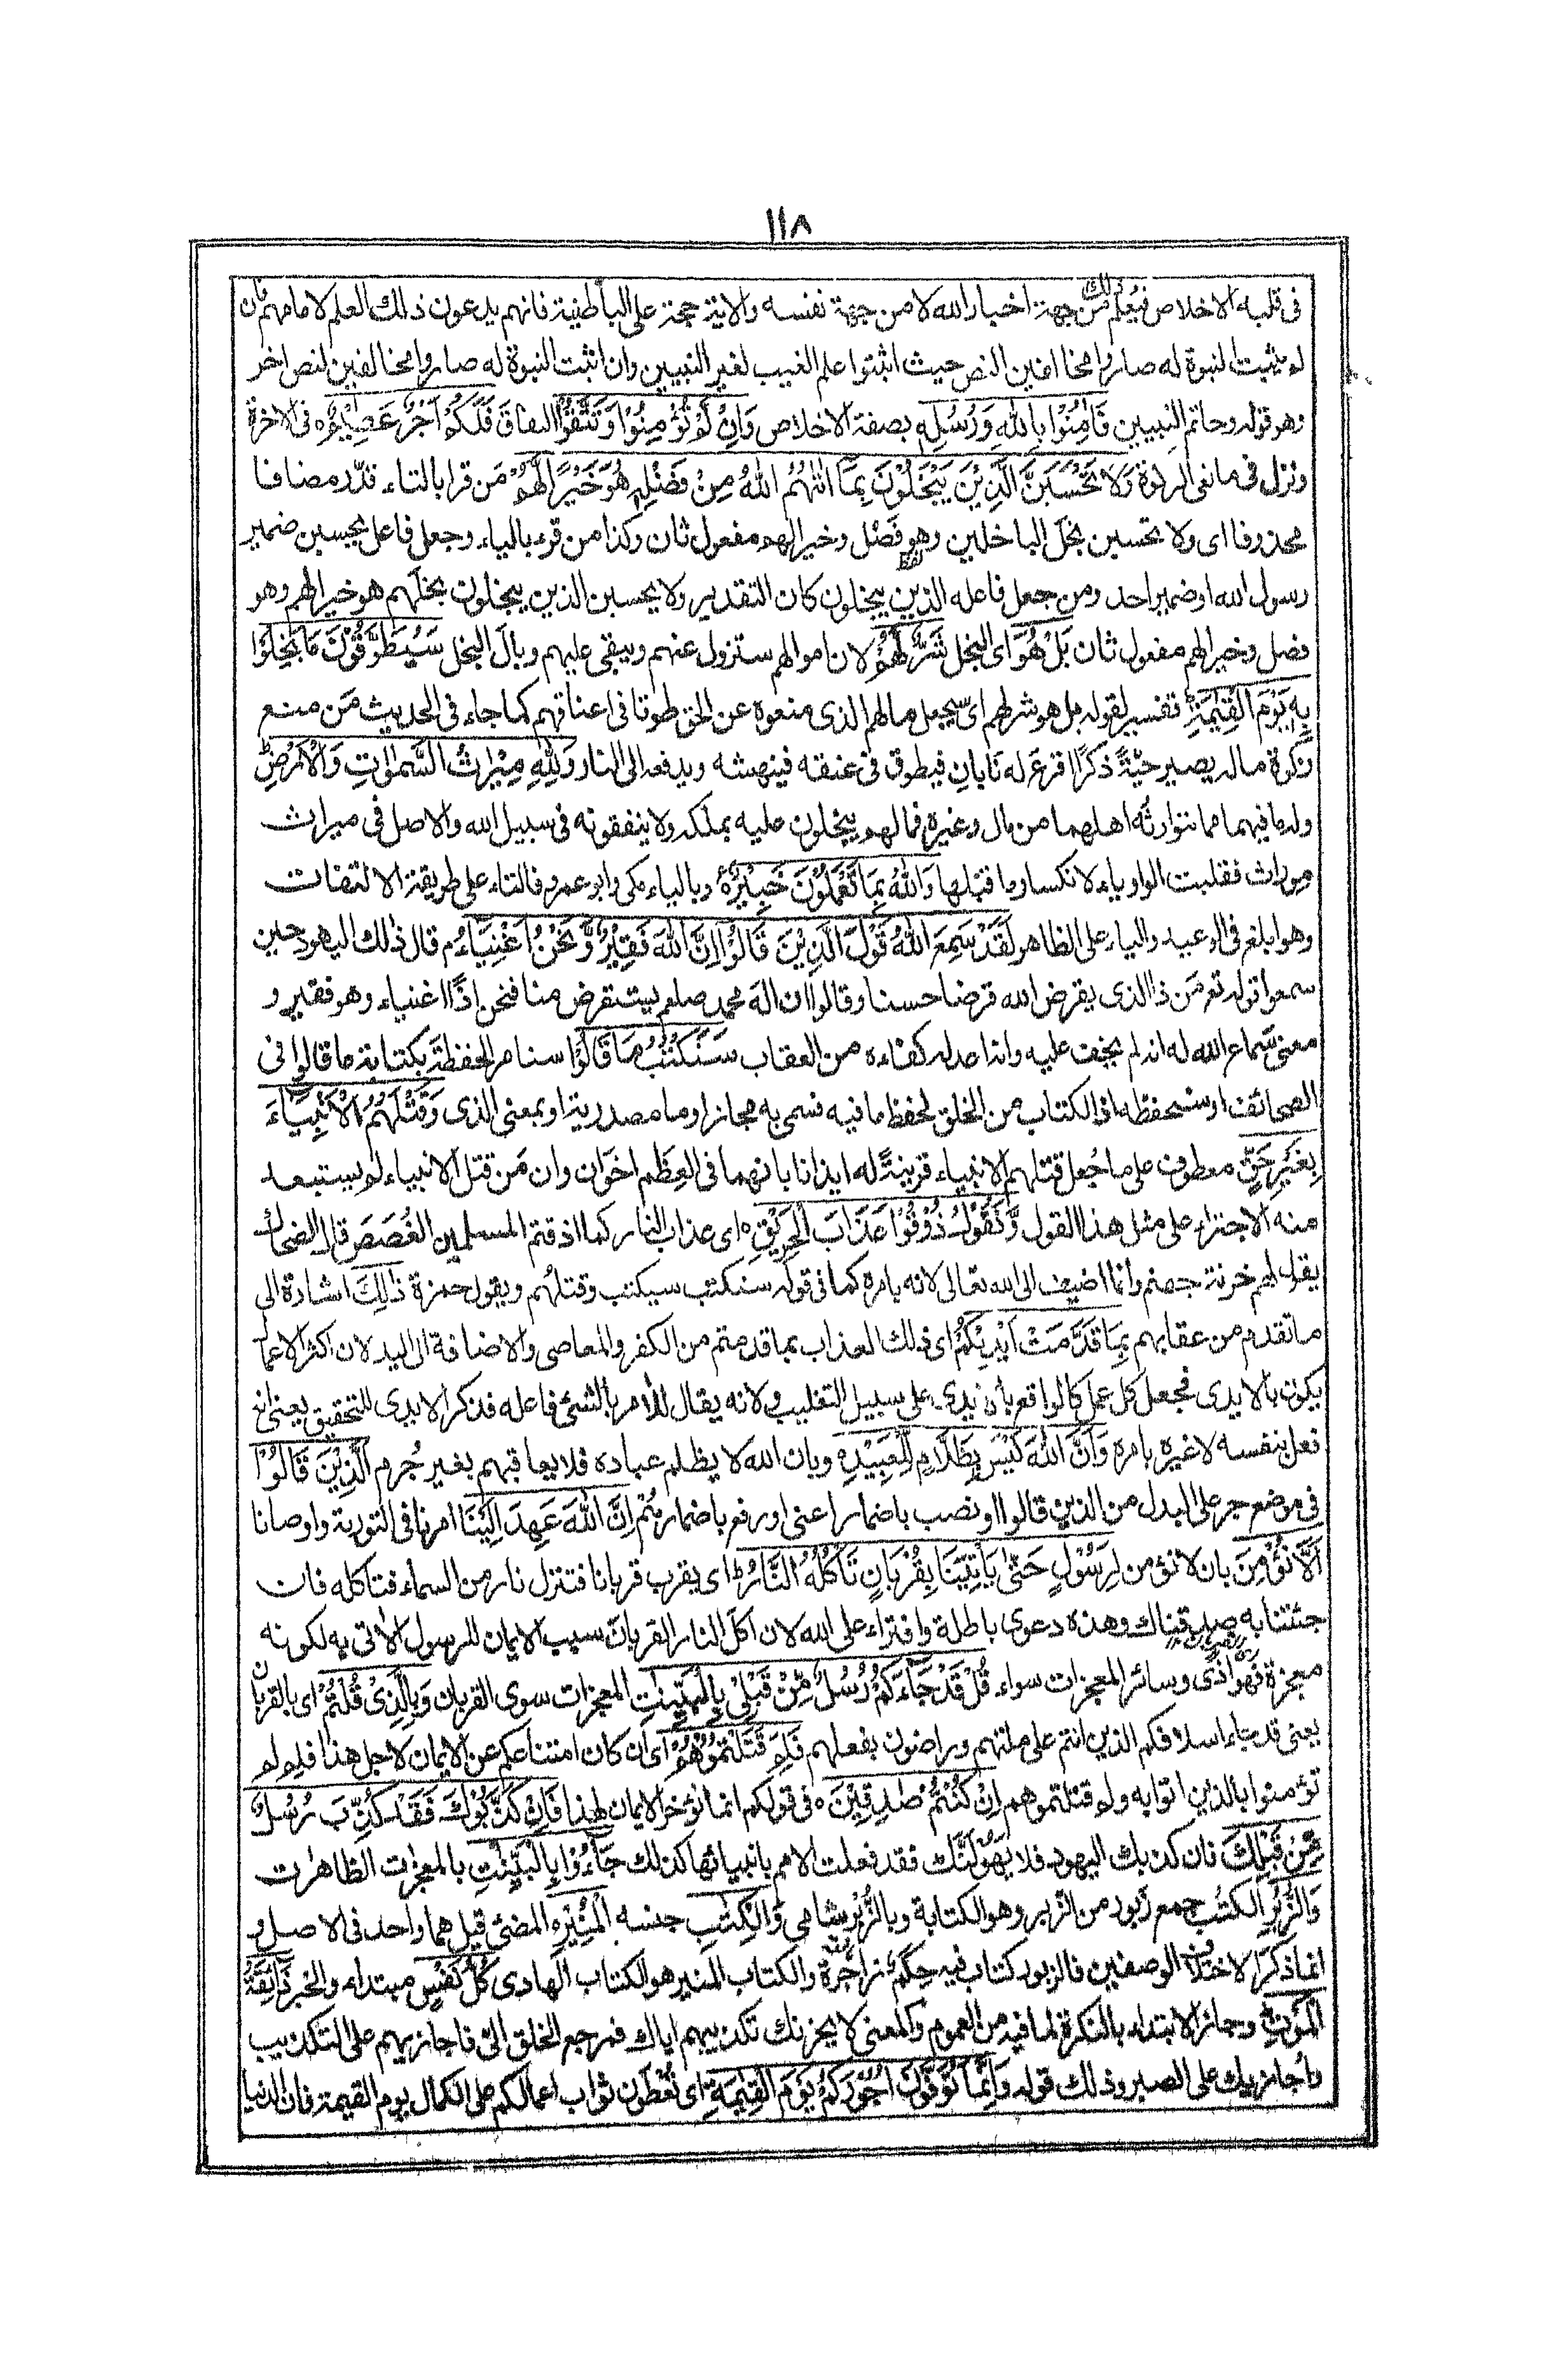 ١١٨
فى قلبه الاخلاص فيعلم ذلك من جهة اخبار الله لا من جهة نفسه والاية حجة على الباطنية فانهم يدعون ذلك العلم لامامهم فان
لم يثبت النبوة له صاروا مخالفين النص حيث اثبتوا علم الغيب لغير النبيين وان اثبت النبوة له صاروا مخالفين لنص اخر
وهو قوله وخاتم النبيين فَاٰمِنُوْا بِاللّٰهِ وَرُسُلِهٖ بصفة الاخلاص وَاِنْ تُؤْمِنُوْا وَتَتَّقُوْا النفاق فَلَكُمْ اَجْرٌ عَظِيْمٌ فى الاخرة
ونزل فى مانعى الزكوة وَلَا تَحْسَبَنَّ الَّذِيْنَ يَبْخَلُوْنَ بِمَآ اٰتٰىهُمُ اللّٰهُ مِنْ فَضْلِهٖ هُوَ خَيْرًا لَّهُمْ مَن قرا بالتاء قدّر مضافا
محذوفا اى ولا تحسبن بخل الباخلين وهو فَصْل وخيرا لهم مفعول ثان وكذا من قرء بالياء وجعل فاعل يحسبن ضمير
رسول الله او ضمير احد ومن جعل فاعله الذين يبخلون كان التقدير ولا يحسبن الذين يبخلون بخلهم هو خيرا لهم وهو
فصل وخيرا لهم مفعول ثان بَلْ هُوَ اى البخل شَرٌّ لَّهُمْ لان اموالهم ستزول عنهم ويبقى عليهم وبال البخل سَيُطَوَّقُوْنَ مَا بَخِلُوْا
بِهٖ يَوْمَ الْقِيٰمَةِ تفسير لقوله بل هو شر لهم اى سيجعل مالهم الذى منعوه عن الحق طوقا فى اعناقهم كما جاء فى الحديث مَن منع
زكوة ماله يصير حيّةً ذَكَرًا اقرع له نابان فيطوق فى عنقه فينهشه ويدفعه الى النار وَلِلّٰهِ مِيْرَاثُ السَّمٰوٰتِ وَالْاَرْضِ
وله ما فيهما مما يتوارثه اهلهما من مال وغيره فمالهم يبخلون عليه بملكه ولا ينفقونه فى سبيل الله والاصل فى ميراث
موراث فقلبت الواو ياء لانكسار ما قبلها وَاللّٰهُ بِمَا تَعْمَلُوْنَ خَبِيْرٌ وبالياء مكى وابو عمرو فالتاء على طريقة الالتفات
وهو ابلغ فى الوعيد والياء على الظاهر لَقَدْ سَمِعَ اللّٰهُ قَوْلَ الَّذِيْنَ قَالُوْٓا اِنَّ اللّٰهَ فَقِيْرٌ وَّنَحْنُ اَغْنِيَآءُ م قال ذلك اليهود حين
سمعوا قوله تعر مَن ذا الذى يقرض الله قرضا حسنا وقالوا ان الٰه محمد صلعم يستقرض منا فنحن اذًا اغنياء وهو فقير و
معنى سماع الله له انه لم يخف عليه وانه اعد له كفاءه من العقاب سَنَكْتُبُ مَا قَالُوْا سنامر الحفظة بكتابة ما قالوا فى
الصحائف او سنحفظه اذ الكتاب من الخلق لحفظ ما فيه فسمى به مجازا وما مصدرية او بمعنى الذى وَقَتْلَهُمُ الْاَنْۢبِيَآءَ
بِغَيْرِ حَقٍّ معطوف على ما جُعل قتلهم الانبياء قرينةً له ايذانا بانهما فى العِظَم اخَوان وان مَن قتل الانبياء لم يستبعد
منه الاجتراء على مثل هذا القول وَّنَقُوْلُ ذُوْقُوْا عَذَابَ الْحَرِيْقِ اى عذاب النار كما اذقتم المسلمين الغُصَصَ قال الضحاك
يقول لهم خزنة جهنم وانما اضيف الى الله تعالى لانه بامره كما فى قوله سنكتب سيكتب وقتلُهم ويقول حمزة ذٰلِكَ اشارة الى
ما تقدم من عقابهم بِمَا قَدَّمَتْ اَيْدِيْكُمْ اى ذلك العذاب بما قدمتم من الكفر والمعاصى والاضافة الى اليد لان اكثر الاعمال
يكون بالايدى فجعل كل عمل كالواقع بالايدى على سبيل التغليب ولانه يقال للأمر بالشئ فاعله فذكر الايدى للتحقيق يعنى انه
فعل بنفسه لا غيره بامره وَاَنَّ اللّٰهَ لَيْسَ بِظَلَّامٍ لِّلْعَبِيْدِ وبان الله لا يظلم عباده فلا يعاقبهم بغير جُرم اَلَّذِيْنَ قَالُوْٓا
فى موضع جر على البدل من الذين قالوا او نصب باضمار اعنى او رفع باضمار هُمْ اِنَّ اللّٰهَ عَهِدَ اِلَيْنَا امرنا فى التورية واوصانا
اَلَّا نُؤْمِنَ بان لا نؤمن لِرَسُوْلٍ حَتّٰى يَاْتِيَنَا بِقُرْبَانٍ تَاْكُلُهُ النَّارُ اى يقرب قربانا فتنزل نار من السماء فتاكله فان
جئتنا به صدقناك وهذه دعوى باطلة وافتراء على الله لان اكل النار القربان سبب الايمان للرسول الاتى به لكونه
معجزة فهو اذًى وسائر المعجزات سواء قُلْ قَدْ جَآءَكُمْ رُسُلٌ مِّنْ قَبْلِىْ بِالْبَيِّنٰتِ المعجزات سوى القربان وَبِالَّذِىْ قُلْتُمْ اى بالقربان
يعنى قد جاء اسلافكم الذين انتم على ملتهم وراضون بفعلهم فَلِمَ قَتَلْتُمُوْهُمْ اى ان كان امتناعكم عن الايمان لاجل هذا فلم لم
تؤمنوا بالذين اتوا به ولم قتلتموهم اِنْ كُنْتُمْ صٰدِقِيْنَ ه فى قولكم انما نؤخر الايمان لهذا فَاِنْ كَذَّبُوْكَ فَقَدْ كُذِّبَ رُسُلٌ
مِّنْ قَبْلِكَ فان كذبك اليهود فلا يَهُوْلَنَّك فقد فعلت الامم بانبيائها كذلك جَآءُوْا بِالْبَيِّنٰتِ بالمعجزات الظاهرات
وَالزُّبُرِ الكتُب جمع زبور من الزبر وهو الكتابة وبالزُّبُر شامى وَالْكِتٰبِ جنسه الْمُنِيْرِ المضئ قيل هما واحد فى الاصل و
انما ذكرا لاختلاف الوصفين فالزبور كتاب فيه حِكَم زاجرة والكتاب المنير هو الكتاب الهادى كُلُّ نَفْسٍ مبتدأء والخبر ذَآئِقَةُ
الْمَوْتِ وجاز الابتداء بالنكرة لما فيه من العموم والمعنى لا يحزنك تكذيبهم اياك فمرجع الخلق الىّ فاجازيهم على التكذيب
واجازيك على الصبر وذلك قوله وَاِنَّمَا تُوَفَّوْنَ اُجُوْرَكُمْ يَوْمَ الْقِيٰمَةِ اى تُعْطَون ثواب اعمالكم على الكمال يوم القيمة فان الدنيا